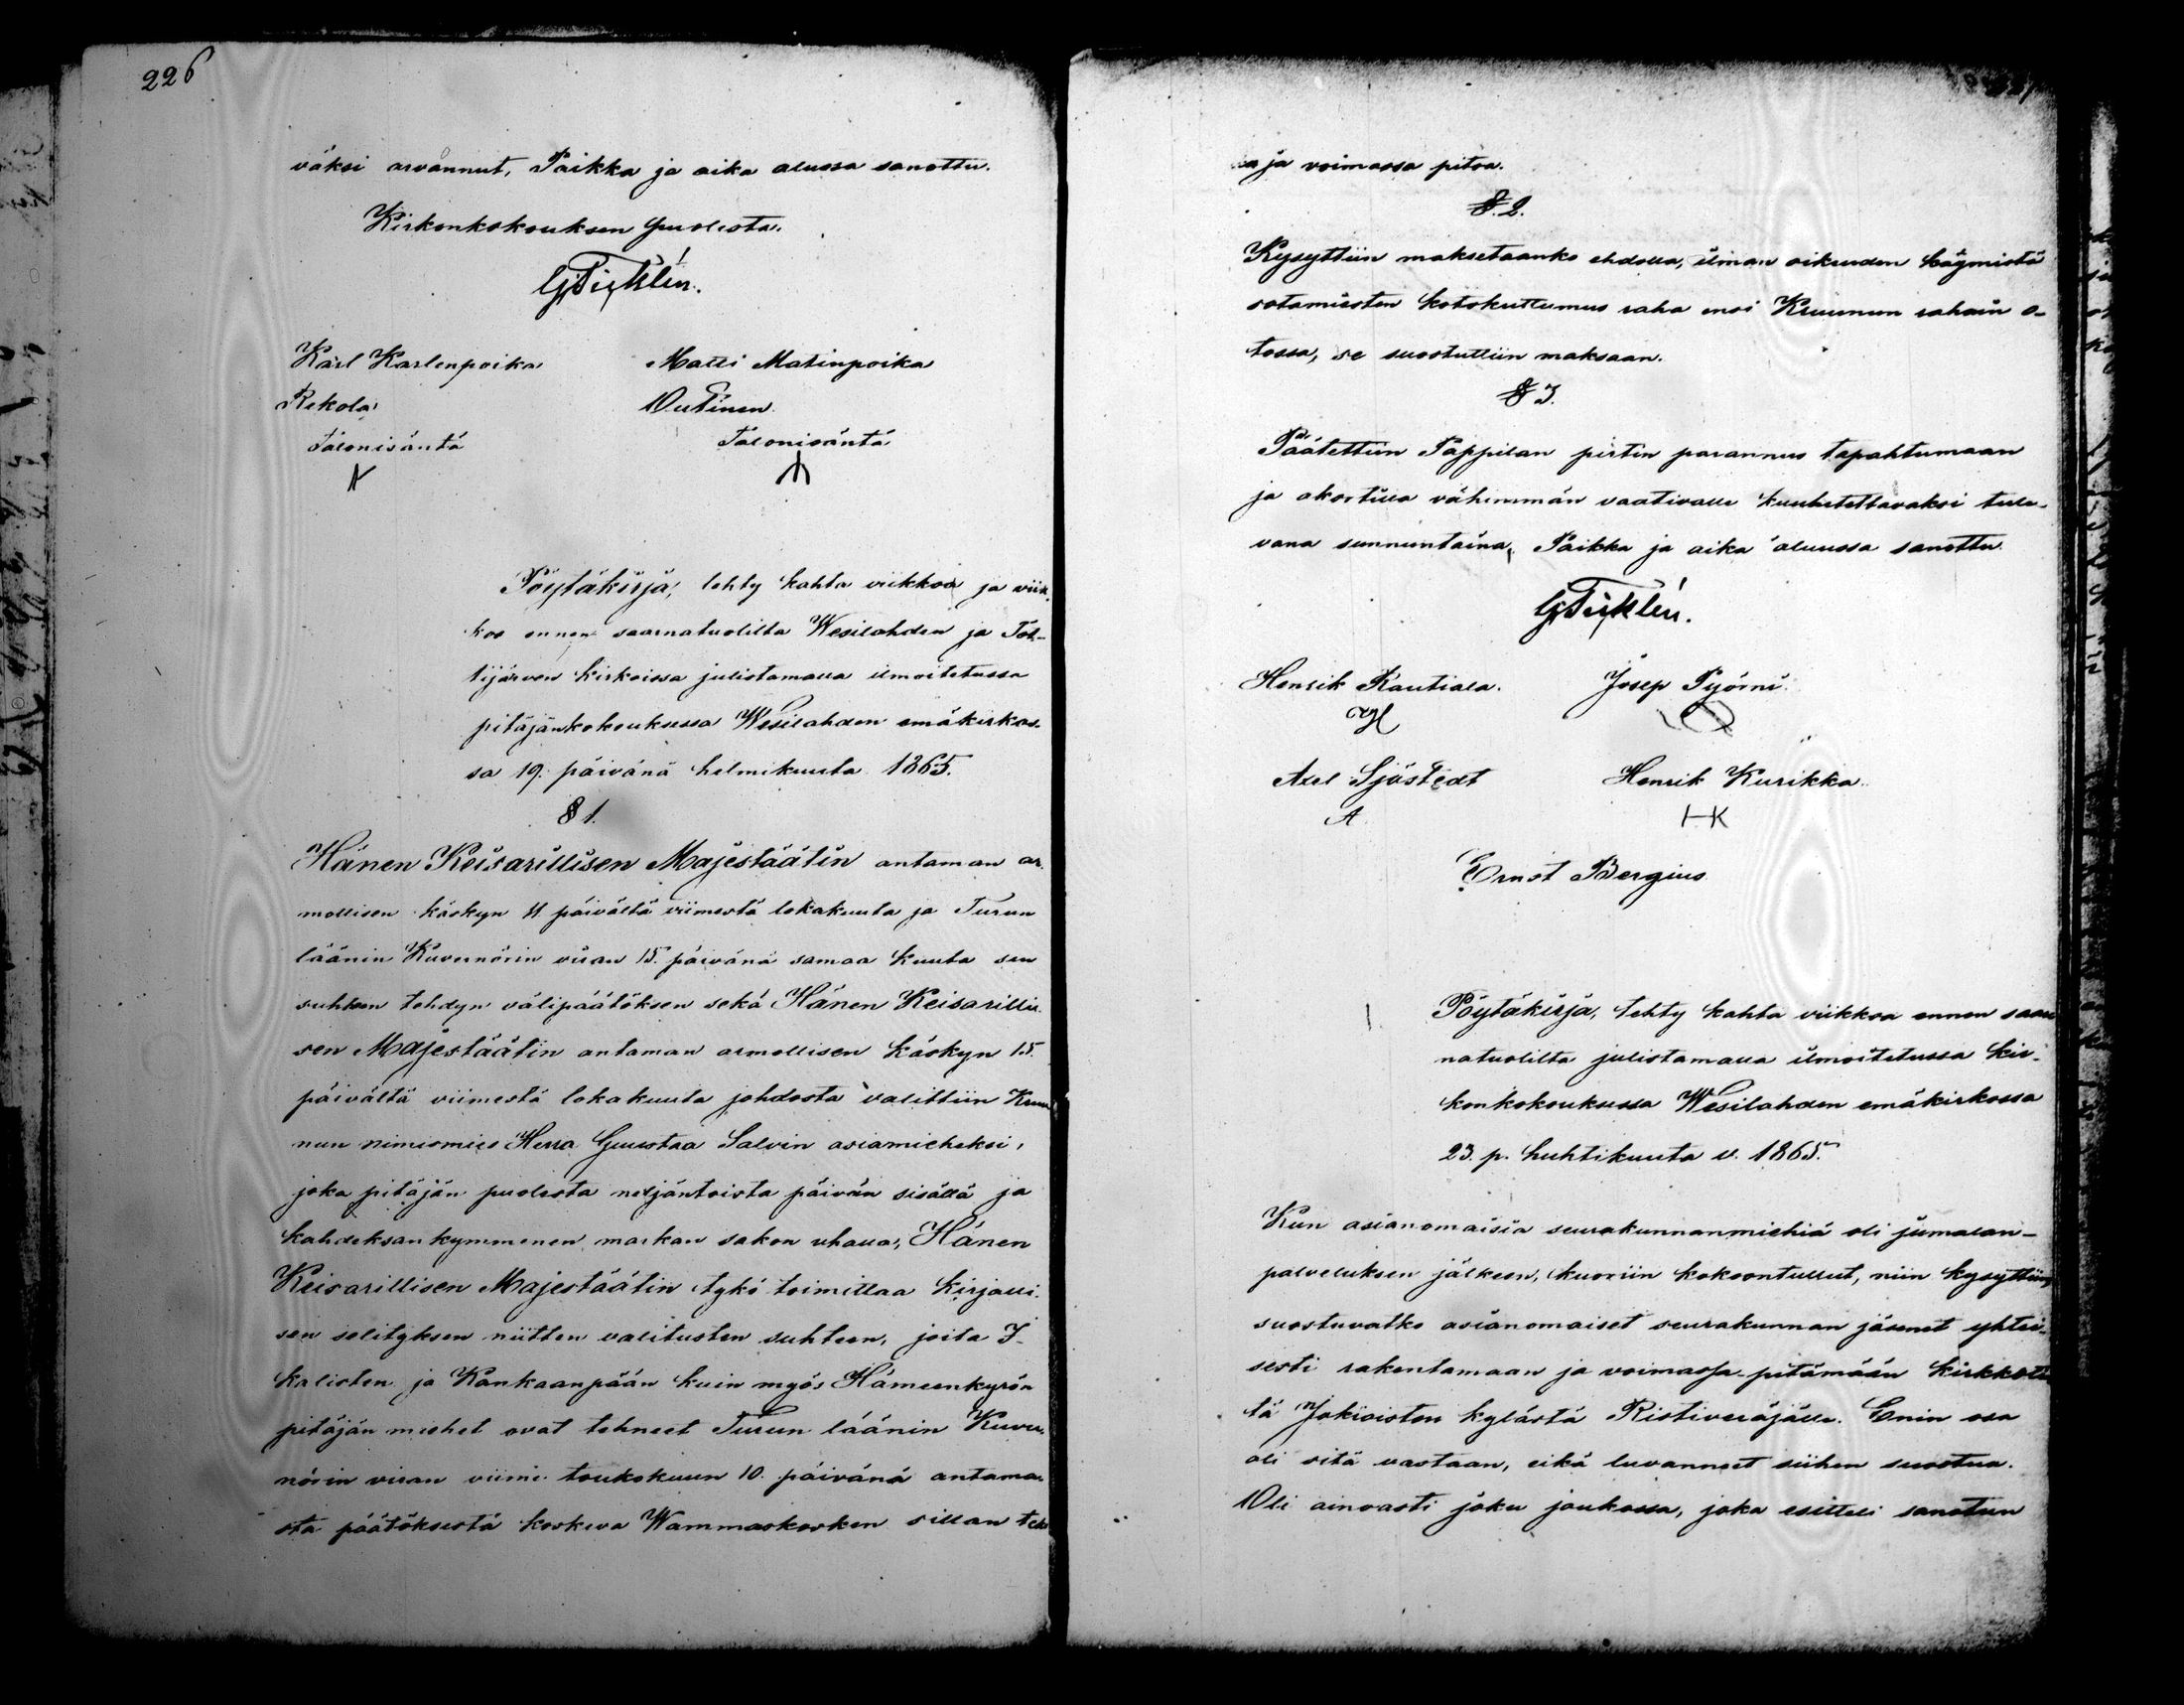 226
väksi arvannut, Paikka ja aika alussa sanottu.
Kirkonkokouksen puolesta.
Karl Karlenpoika
Matti Matinpoika
Rekola
Outinen
Talonisäntä
Talonisäntä
Pöytäkirja, tehty kahta viikkoa ja viik
koa ennen saarnatuolilta Wesilahden ja Tot-
tijärven kirkoissa julistamalla ilmoitetussa
pitäjänkokouksessa Wesilahden emäkirkos-
sa 19. päivänä helmikuuta 1865.
§ 1.
Hänen Keisarillisen Majestäätin antaman ar-
mollisen käskyn 11 päivältä viimestä lokakuuta ja Turun
läänin Kuvernörin viran 15. päivänä samaa kuuta sen
suhteen tehdyn välipäätöksen sekä Hänen Keisarilli-
sen Majestäätin antaman armollisen käskyn 15.
päivältä viimestä lokakuuta johdosta valittiin Kruu
nun nimismies Herra Guustaa Salvin asiamieheksi,
joka pitäjän puolesta neljäntoista päivän sisällä ja
kahdeksankymmenen markan sakon uhalla, Hänen
Keisarillisen Majestäätin tykö toimittaa kirjalli-
sen selityksen niitten valitusten suhteen, joita I-
kalisten ja Kankaanpään kuin myös Hämeenkyrön
pitäjän miehet ovat tehneet Turun läänin Kuver-
nörin viran viime toukokuun 10. päivänä antama-
sta päätöksestä koskeva Wammaskosken sillan teko
a ja voimassa pitoa.
§. 2.
Kysyttiin maksetaanko ehdolla, ilman oikeuden käymistä
sotamiesten kotokuttumus raha ensi Kruunun rahain o-
tossa, se suostuttiin maksaan.
§ 3.
Päätettiin Pappilan pirtin parannus tapahtumaan
ja akortilla vähemmän vaativalle kuulutettavaksi tule-
vana sunnuntaina, Paikka ja aika aluussa sanottu
Henrik Rautiala.
Josep Pyörni
H
Axel Sjöstedt
Henrik Kurikka
A
HK
Ernst Bergius
Pöytäkirja, tehty kahta viikkoa ennen saar
natuolilta julistamalla ilmoitetussa kir-
konkokouksessa Wesilahden emäkirkossa
23. p. huhtikuuta v. 1865.
Kun asianomaisia seurakunnanmiehiä oli jumalan-
palveluksen jälkeen, kuoriin kokoontullut, niin kysyttiin
suostuvatko asianomaiset seurakunnan jäsenet yhtei-
sesti rakentamaan ja voimassa-pitämään kirkkotie
tä Jokioisten kylästä Ristiveräjälle. Enin osa
oli sitä vastaan, eikä luvanneet siihen suostua.
Oli ainoasti joku joukossa, joka esitteli sanotun